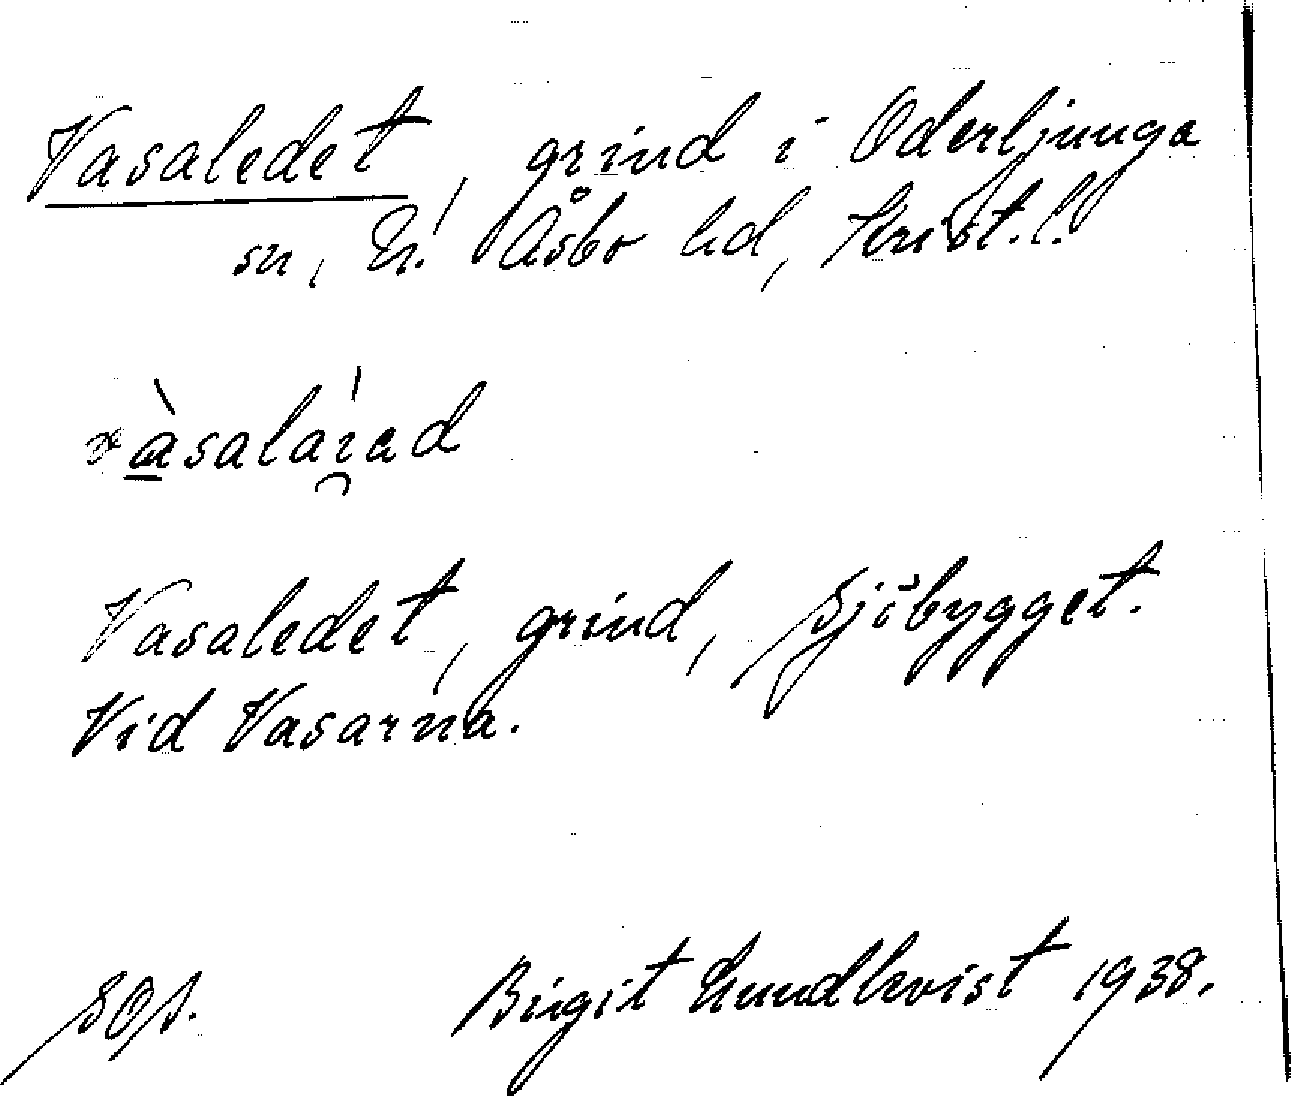 Vasaledet, grind i Oderljunga
sn, N. Åsbo hd, Krist. l.
vàsalaiad
Vasaledet, grind, Sjöbygget.
Vid Vasarna.
SOS. Birgit Lundkvist 1938.